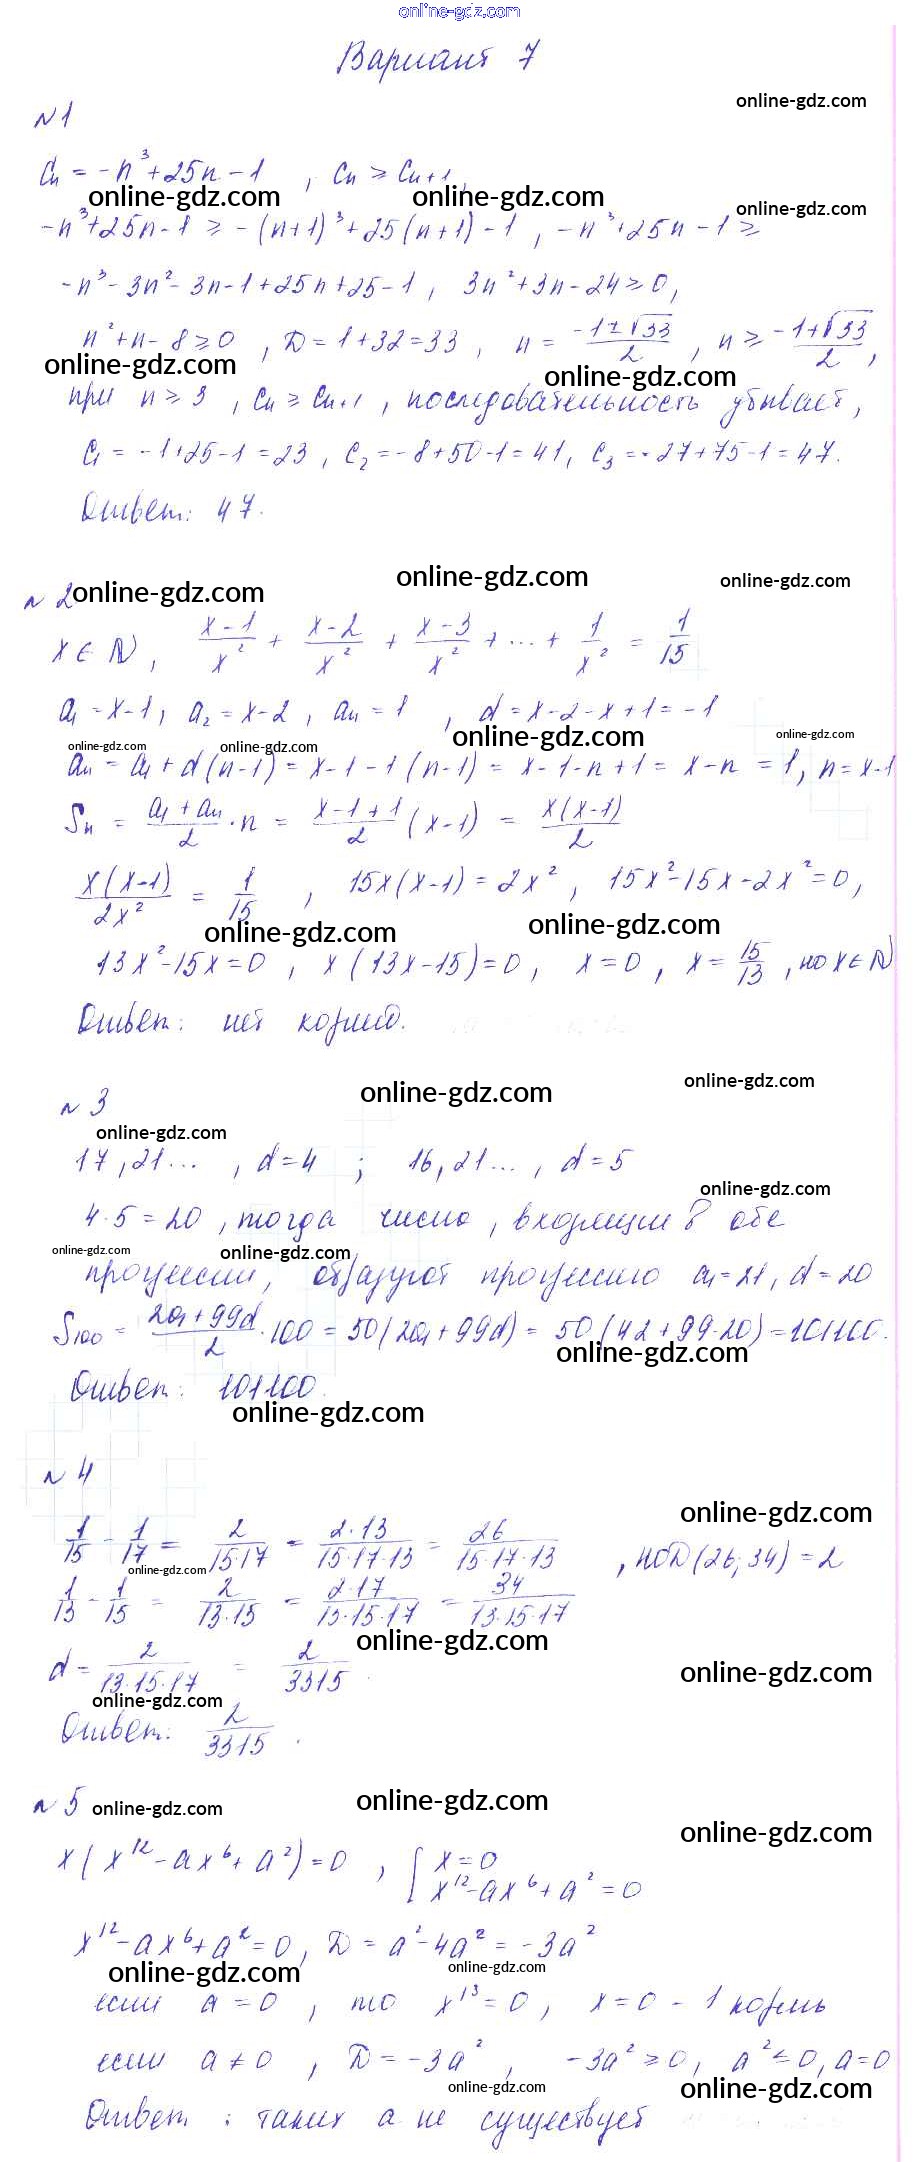 online-gdz.com
Вариант 7
online-gdz.com
№1
Cn = -n³ + 25n - 1 , Cn ≥ Cn+1,
online-gdz.com online-gdz.com online-gdz.com
-n³+25n-1 ≥ -(n+1)³+25(n+1)-1 , -n³+25n-1 ≥
-n³-3n²-3n-1+25n+25-1, 3n²+3n-24≥0,
n²+n-8≥0 , D=1+32=33 , n = (-1±√33)/2 , n ≥ (-1+√33)/2 ,
online-gdz.com online-gdz.com
при n≥3 , Cn ≥ Cn+1 , последовательность убывает,
C1 = -1+25-1 = 23, C2 = -8+50-1 = 41, C3 = -27+75-1 = 47.
Ответ: 47.
№ 2 online-gdz.com online-gdz.com online-gdz.com
x ∈ N , (x-1)/x² + (x-2)/x² + (x-3)/x² + ... + 1/x² = 1/15
a1 = x-1, a2 = x-2, an = 1 , d = x-2-x+1 = -1
online-gdz.com online-gdz.com online-gdz.com online-gdz.com
an = a1 + d(n-1) = x-1-1(n-1) = x-1-n+1 = x-n = 1, n = x-1
Sn = (a1+an)/2 · n = (x-1+1)/2 (x-1) = x(x-1)/2
x(x-1)/2x² = 1/15 , 15x(x-1) = 2x² , 15x²-15x-2x²=0,
online-gdz.com online-gdz.com
13x²-15x=0 , x(13x-15)=0 , x=0 , x=15/13 , но x∈N
Ответ: нет корней.
№ 3 online-gdz.com online-gdz.com
online-gdz.com
17, 21... , d=4 ; 16, 21... , d=5
online-gdz.com
4·5=20 , тогда числа, входящие в обе
online-gdz.com online-gdz.com
прогрессии, образуют прогрессию a1=21, d=20
S100 = (2a1+99d)/2 · 100 = 50(2a1+99d) = 50(42+99·20) = 101100.
online-gdz.com
Ответ: 101100.
online-gdz.com
№ 4
online-gdz.com
1/15 - 1/17 = 2/15·17 = 2·13/15·17·13 = 26/15·17·13 , НОД(26; 34) = 2
online-gdz.com
1/13 - 1/15 = 2/13·15 = 2·17/13·15·17 = 34/13·15·17
online-gdz.com
d = 2/13·15·17 = 2/3315 .
online-gdz.com
online-gdz.com
Ответ: 2/3315 .
№ 5 online-gdz.com online-gdz.com
online-gdz.com
x(x¹²-ax⁶+a²)=0 , [ x=0
x¹²-ax⁶+a²=0
x¹²-ax⁶+a²=0, D = a²-4a² = -3a²
online-gdz.com online-gdz.com
если a=0 , то x¹³=0 , x=0 - 1 корень
если a≠0 , D=-3a² , -3a²≥0, a²≤0, a=0
online-gdz.com online-gdz.com
Ответ: таких a не существует